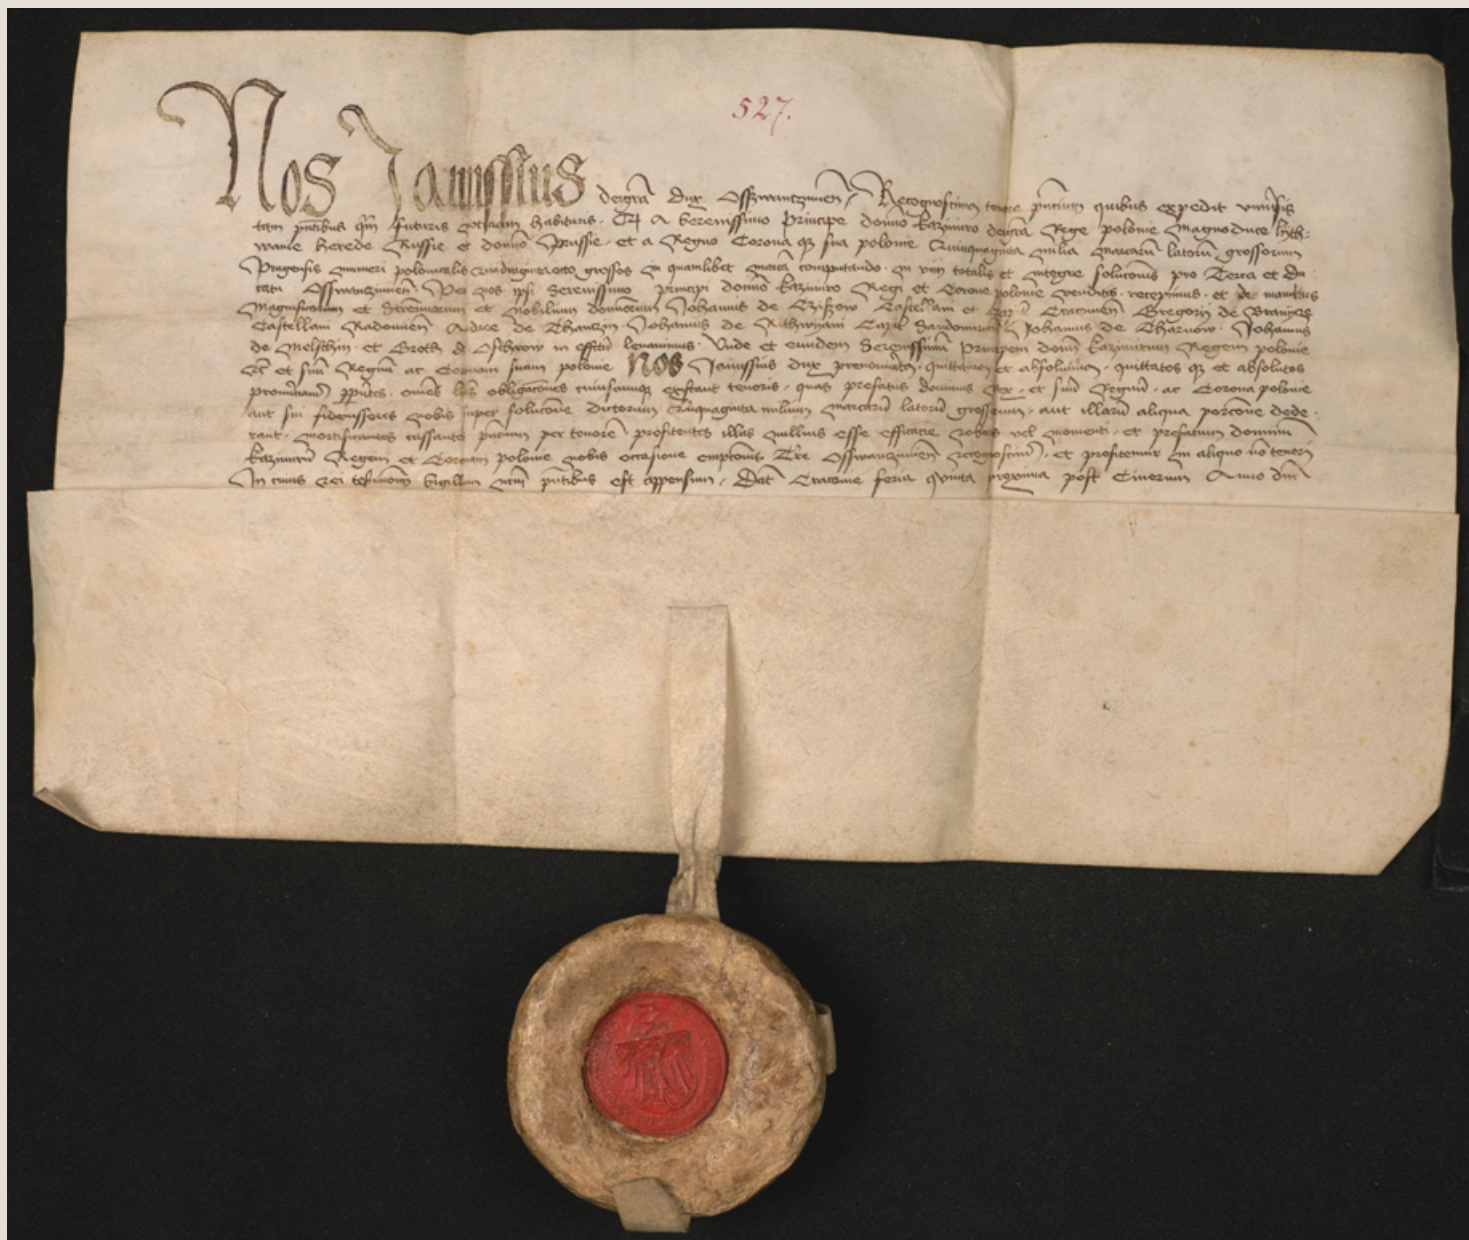 527.
Nos Janussius deigrā dux Osswanczimen̄ Recognoscimus tenore pn̄cium quibus expedit vniūsis
tam pn̄tibus q̄m futuris noticiam habituris · Q A Serenissimo Principe domno Kazimiro deigrā Rege polonie Magnoduce lyth-
wanie herede Russie et domno prussie · et a Regno Corona q̄ sua polonie Quinquaginta milia Marcarū latorū grossorum
Pragensis numeri polonicalis Quadragintaocto grossos in quamlibet marcā computando · in vim totalis et integre soluconis pro Terra et Du
catu Osswanczimen̄ Per nos ipsi Serenissimo Principi domno Kazimiro Regi et Corone polonie venditis · recepimus · et de manibus
Magnificorum et Strenuorum et Nobilium dominorum Johannis de Cziszow Castellani et Cracouien̄ Gregorij de Branycze
Castellani Radomien̄ de Thanczin Johannis de Rithwyani Sandomirien̄ Johannis de Tharnow · Johannis
de Melschin · et Groth de Ostrow in effctū leuauimus · Vnde et eundem Serenissimū Principem domnū Kazimirum Regem polonie
et suū Regnū ac Coronam suam polonie Nos Janussius dux prenominatus · quittamus et absoluimus · quittatos q̄ et absolutos
pronūciamus p̄ p̄ntes · omēs lr̄as obligacōnes cuiuscumq̄ exstant tenoris · quas prefatus dominus Rex · et suū Regnū · ac Corona polonie
aut sui fideiussores nobis super solucōne dictorum Quinquaginta milium marcarū latorū grossorum · aut illarū aliqua porcōne dede-
rant · mortificantes cassantes pn̄cium per tenorē · profitentes illas nullius esse efficacie roboris vel momenti · et prefatum domnum
Kazimirū Regem et Coronam polonie nobis occasione empcōnis Trē Osswanczimen̄ recognoscimus · et profitemur in aliquo nō teneri
In cuius rei testimoniū Sigillum nr̄m pn̄tibus est appensum · Dat Cracouie feria quinta proxima post Cinerum Anno dn̄i